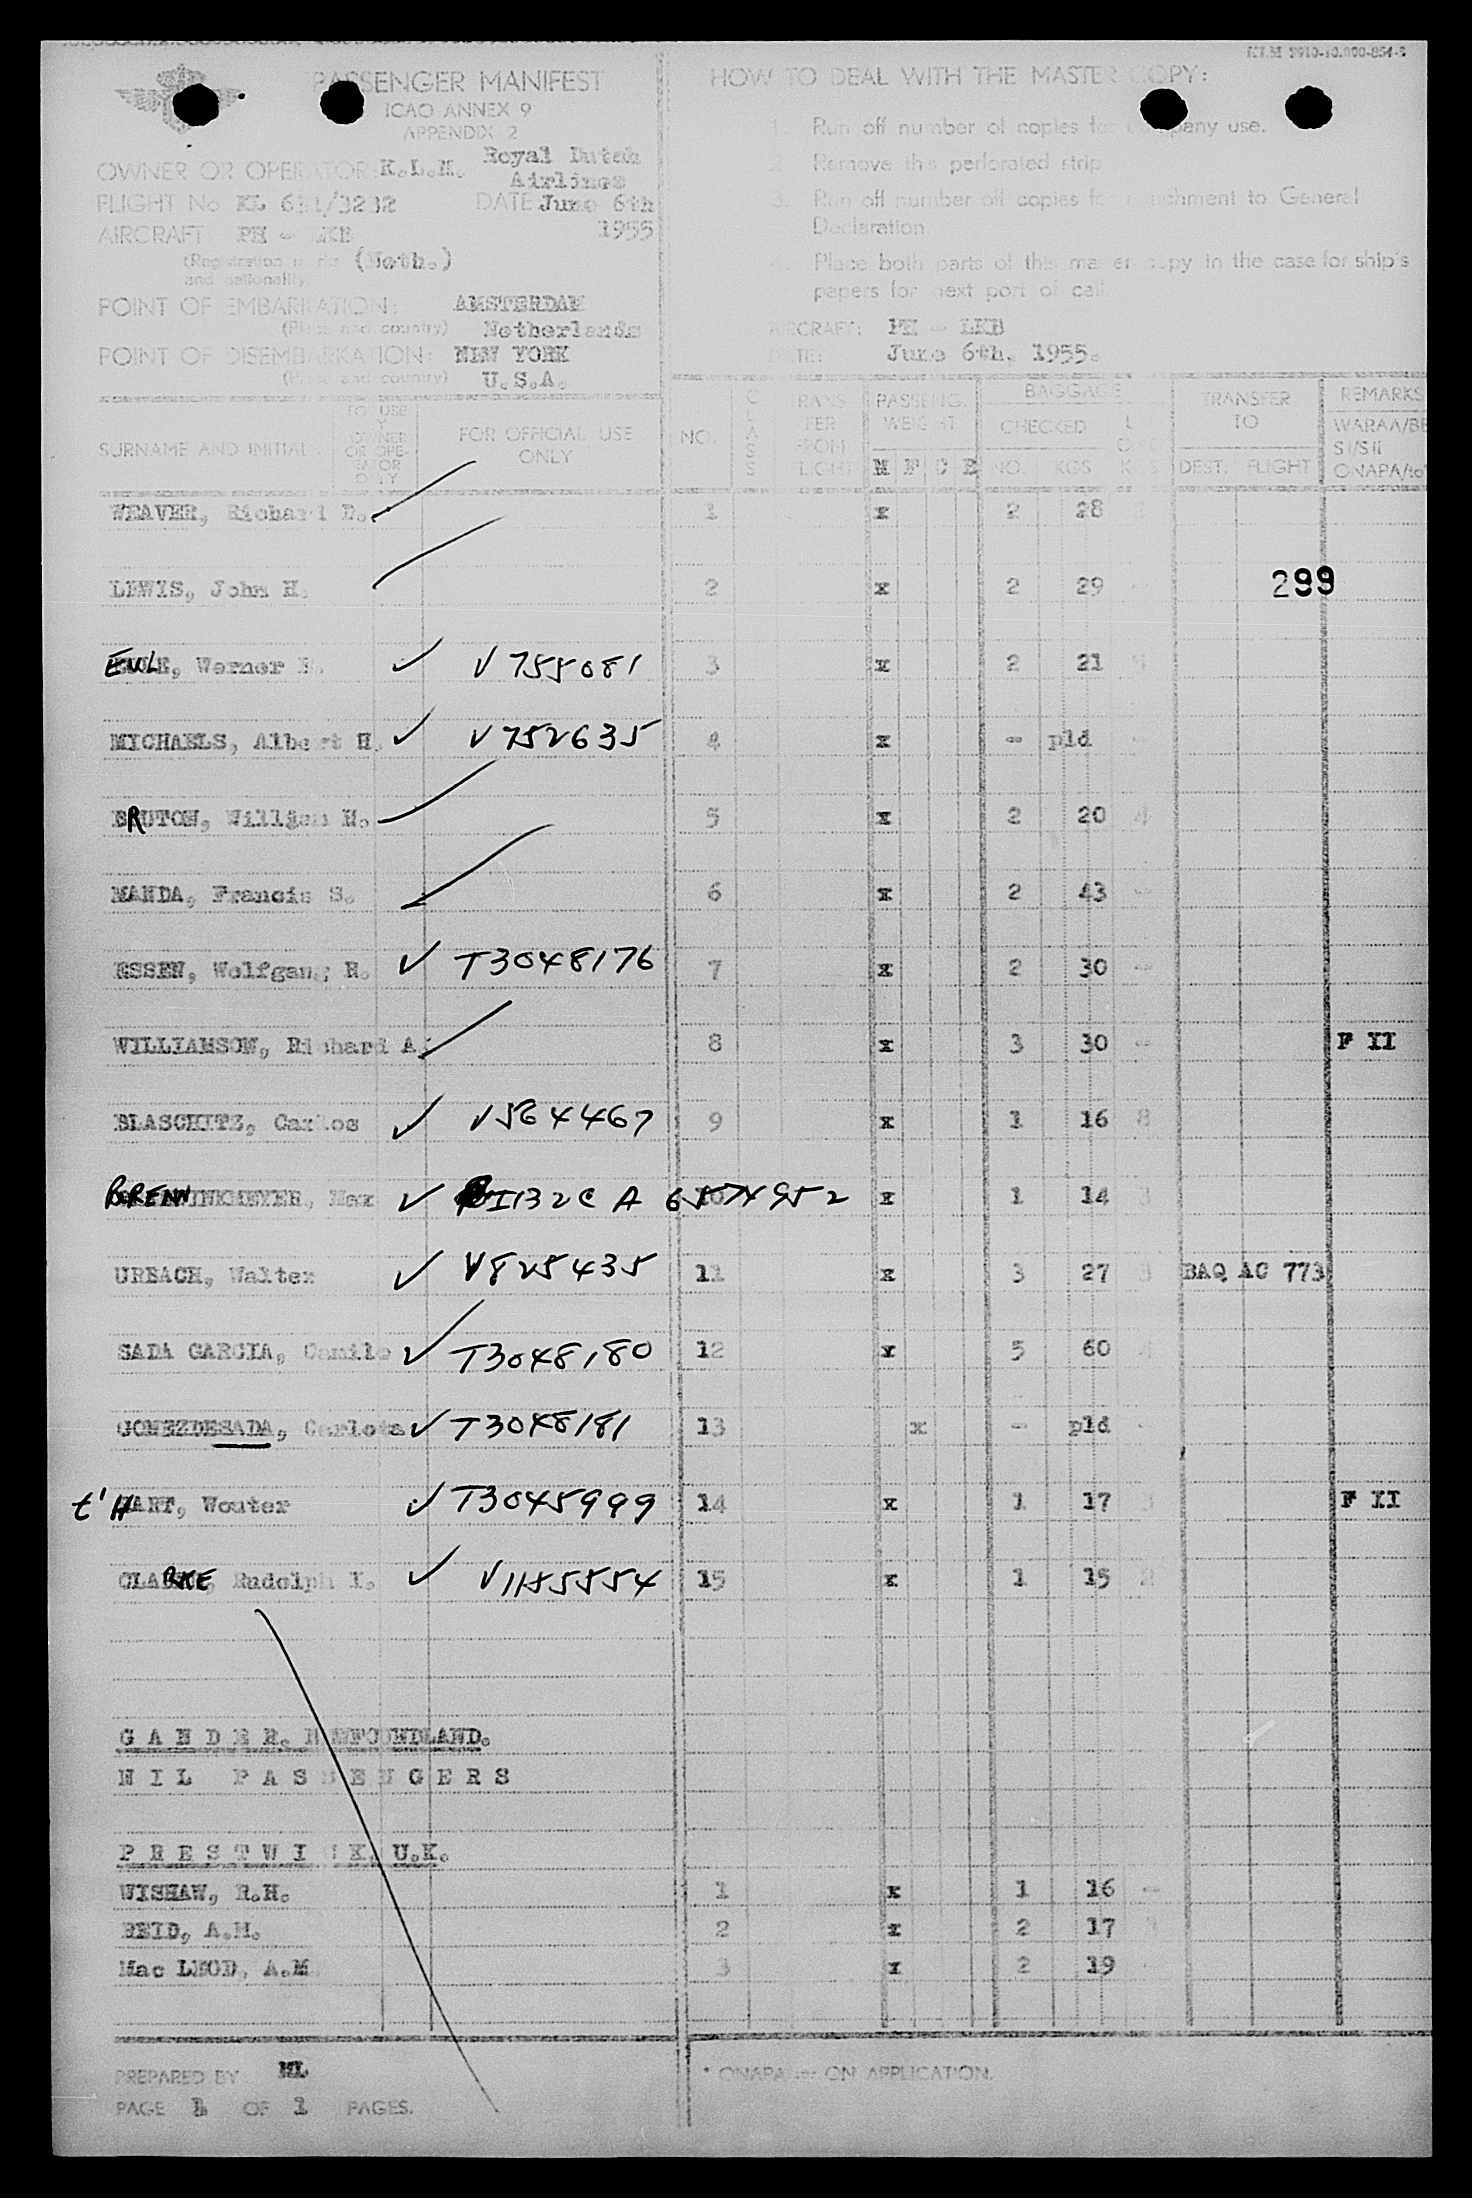 PASSENGER MANIFEST
ICAO ANNEX 9
APPENDIX 2
OWNER OR OPERATOR: K.L.M. Royal Dutch Airlines
FLIGHT No KL 611/3232 DATE: June 6th 1955
AIRCRAFT PH - LKB
(Registration marks and nationality) (Neth.)
POINT OF EMBARKATION: AMSTERDAM
(Place and country) Netherlands
POINT OF DISEMBARKATION: NEW YORK
(Place and country) U.S.A.
HOW TO DEAL WITH THE MASTER COPY:
1. Run off number of copies for company use.
2. Remove this perforated strip
3. Run off number of copies for attachment to General Declaration
4. Place both parts of this master copy in the case for ship's papers for next port of call
AIRCRAFT: PH - LKB
DATE: June 6th. 1955.
SURNAME AND INITIAL TO USE BY OWNER OR OPERATOR ONLY FOR OFFICIAL USE ONLY NO. CLASS TRANSFER FROM FLIGHT PASSENG. WEIGHT M F C B BAGGAGE CHECKED NO. KGS TRANSFER TO DEST. FLIGHT REMARKS
WEAVER, Richard D. 1 x 2 28
LEWIS, John H. 2 x 2 29 299
EULE, Werner ✓ V755081 3 x 2 21
MICHAELS, Albert H. ✓ V752635 4 x - pld
BRUTON, William H. 5 x 2 20 4
MANDA, Francis S. 6 x 2 43 -
ESSEN, Wolfgang H. ✓ T3048176 7 x 2 30 -
WILLIAMSON, Richard A. 8 x 3 30 - F II
BLASCHITZ, Carlos ✓ V564467 9 x 1 16 8
BRENNINKMEYER, Max ✓ I132C A 6574952 10 x 1 14 3
URBACH, Walter ✓ V825435 11 x 3 27 3 BAQ AC 773
SADA GARCIA, Camilo ✓ T3048180 12 x 5 60 4
GOMEZDESADA, Carlota ✓ T3048181 13 x - pld -
t'HART, Wouter ✓ T3045999 14 x 1 17 3 F II
CLARKE, Rudolph I. ✓ V1155554 15 x 1 15 2
GANDER. NEWFOUNDLAND.
NIL PASSENGERS
PRESTWICK, U.K.
WISHAW, R.H. 1 x 1 16 -
REID, A.M. 2 x 2 17
Mac LEOD, A.M. 3 x 2 19
PREPARED BY ML
PAGE 1 OF 1 PAGES.
ON APPLICATION.